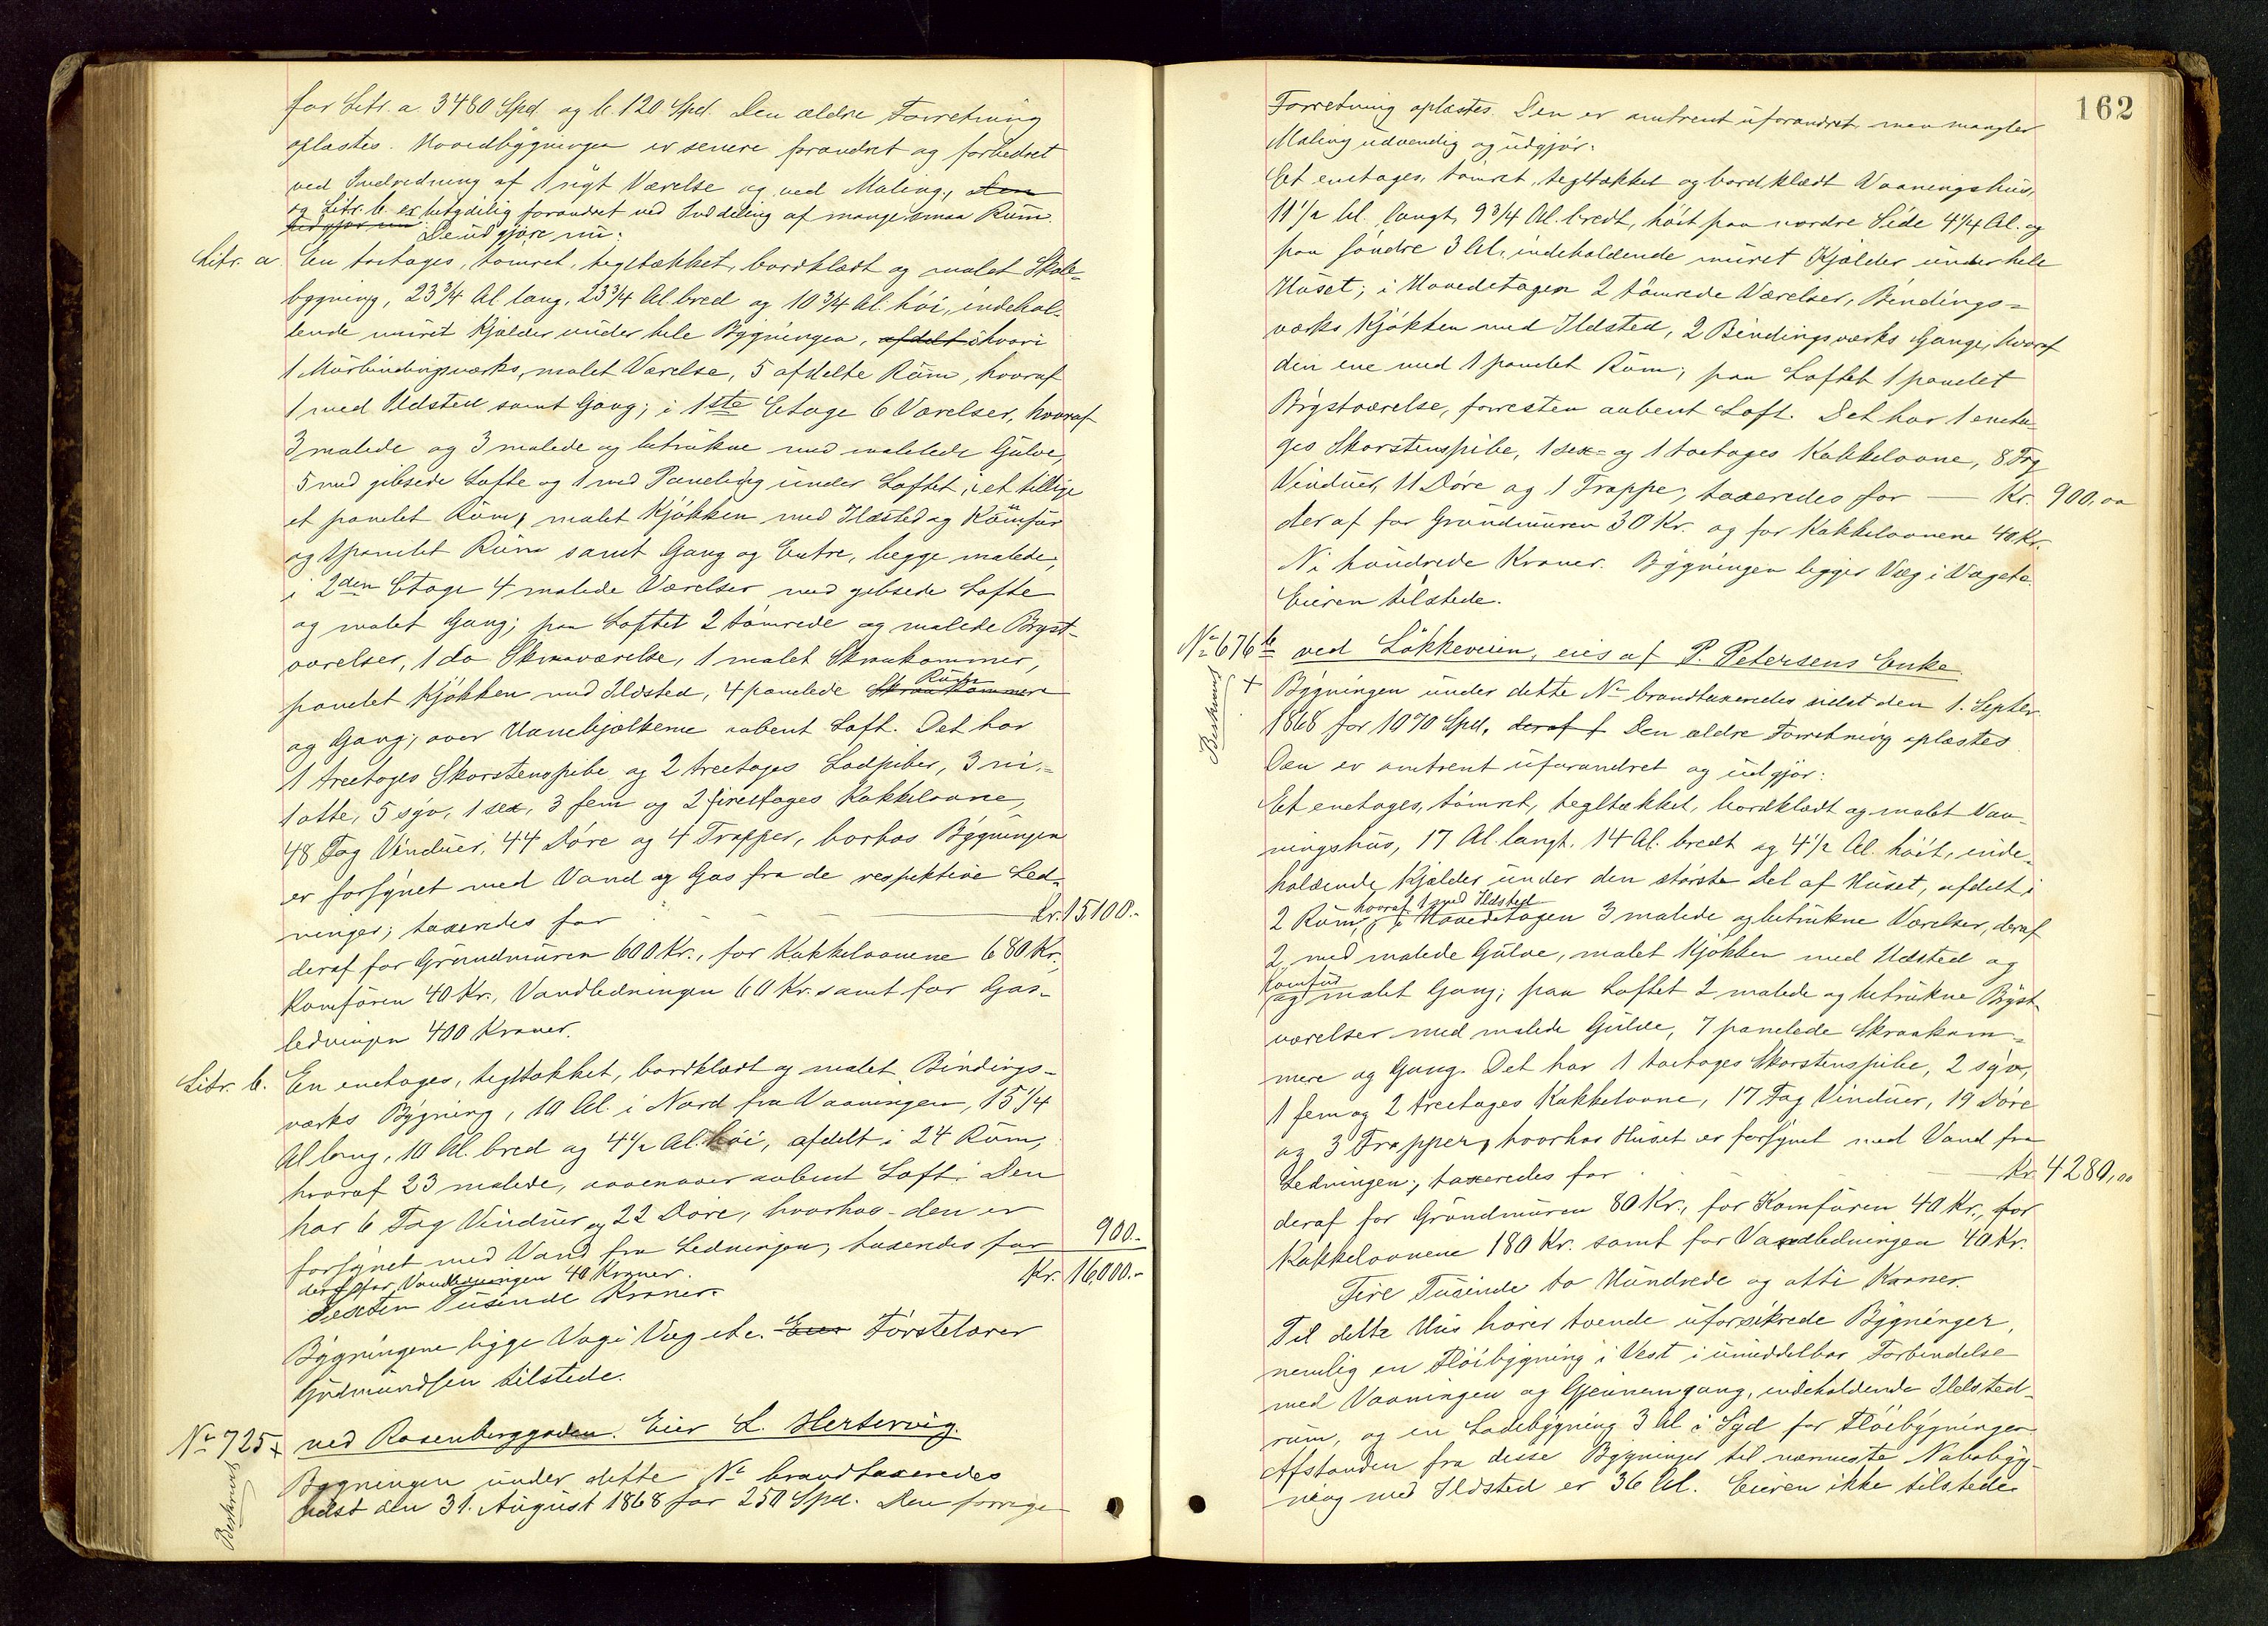 for Litr. a. 3480 Spd. og b. 120 Spd. Den ældre Forretning
oplæstes. Hovedbygningen er senere forandret og forbedret
ved Indredning af 1 nyt Værelse og ved Maling, den
og Litr. b. er betydelig forandret ved Inddeling af mange smaa Rüm.
udgjør nu De üdgjøre nü:
Litr. a. En toetages, tømret, tegltækket, bordklædt og malet Skole-
bygning, 23 3/4 Al. lang, 23 3/4 Al. bred og 10 3/4 Al. høi, indehol-
dende müret Kjælder ünder hele Bygningen, afdelt i hvori
1 Mürbindingsværks, malet Værelse, 5 afdelte Rüm, hvoraf
1 med Ildsted samt Gang; i 1ste Etage 6 Værelser, hvoraf
3 malede og 3 malede og betrükne med malede Gülve,
5 med gibsede Lofte og 1 med Paneling ünder Loftet, i et tillige
et panelet Rüm, malet Kjøkken med Ildsted og Komfür
og 1 panelet Rüm samt Gang og Entre, begge malede;
i 2den Etage 4 malede Værelser med gibsede Lofte
og malet Gang; paa Loftet 2 tømrede og malede Bryst-
værelser, 1 do Skraaværelse, 1 malet Skraakammer,
panelet Kjøkken med Ildsted, 4 panelede Skraakammere Rüm
og Gang; over Hanebjælkerne aabent Loft. Det har
1 treetages Skorstenspibe og 2 treetages Lodpiber, 3 ni-,
1 otte, 5 syv, 1 sex, 3 fem og 2 fireetages Kakkelovne,
48 Fag Vindüer, 44 Døre og 4 Trapper, hvorhos Bygningen
er forsynet med Vand og Gas fra de respektive Led-
ninger; taxeredes for Kr. 15100.-
deraf for Gründmüren 600 Kr., for Kakkelovnene 680 Kr.,
Komfüren 40 Kr., Vandledningen 60 Kr. samt for Gas-
ledningen 400 Kroner.
Litr. b. En enetages, tegltækket, bordklædt og malet Bindings-
værks Bygning, 10 Al. i Nord fra Vaaningen, 15 1/4
Al. lang, 10 Al. bred og 4 1/2 Al. høi, afdelt i 24 Rüm,
hvoraf 23 malede, ovenover aabent Loft. Den
har 6 Fag Vindüer og 22 Døre, hvorhos den er
forsynet med Vand fra Ledningen; taxeredes for 900.-
deraf for Vandledningen 40 Kroner. Kr. 16000.-
Sexten Tüsinde Kroner.
Bygningene ligge Væg i Væg etc. Eier Førstelærer
Gudmündsen tilstede.
No 725 x ved Rosenberggaden. Eier L. Hertervig.
Beskrevet
Bygningen ünder dette No brandtaxeredes
sidst den 31. Aügüst 1868 for 250 Spd. Den forrige
162
Forretning oplæstes. Den er omtrent üforandret, men mangler
Maling üdvendig og üdgjør:
Et enetages, tømret, tegltækket og bordklædt Vaaningshüs,
11 1/2 Al. langt, 9 3/4 Al. bredt, høit paa nordre Side 4 1/4 Al. og
paa søndre 3 Al., indeholdende müret Kjælder ünder hele
Hüset; i Hovedetagen 2 tømrede Værelser, Bindings-
værks Kjøkken med Ildsted, 2 Bindingsværks Gange, hvoraf
den ene med 1 panelet Rüm; paa Loftet 1 panelet
Brystværelse, forresten aabent Loft. Det har 1 eneta-
ges Skorstenspibe, 1 sex- og 1 toetages Kakkelovne, 8 Fag
Vindüer, 11 Døre og 1 Trappe, taxeredes for Kr. 900,00
deraf for Gründmüren 30 Kr. og for Kakkelovnene 40 Kr.
Ni hündrede Kroner. Bygningen ligger Væg i Væg etc.
Eieren tilstede.
No 676 b ved Løkkeveien, eies af P. Petersens Enke
Beskrevet
x Bygningen ünder dette No brandtaxeredes sidst den 1. Septbr.
1868 for 1070 Spd. deraf f Den ældre Forretning oplæstes
Den er omtrent üforandret og üdgjør:
Et enetages, tømret, tegltækket, bordklædt og malet Vaa-
ningshüs, 17 Al. langt, 14 Al. bredt og 4 1/2 Al. høit, inde-
holdende Kjælder ünder den største Del af Hüset, afdelt i
2 Rüm, hvoraf 1 med Ildsted i Hovedetagen 3 malede og betrükne Værelser, deraf
2 med malede Gülve, malet Kjøkken med Ildsted og
Komfür og malet Gang; paa Loftet 2 malede og betrükne Bryst-
værelser med malede Gülve, 7 panelede Skraakam-
mere og Gang. Det har 1 toetages Skorstenspibe, 2 syv,
1 fem og 2 treetages Kakkelovne, 17 Fag Vindüer, 19 Døre
og 3 Trapper, hvorhos Hüset er forsynet med Vand fra
Ledningen; taxeredes for Kr. 4280,00
deraf for Gründmüren 80 Kr., for Komfüren 40 Kr., for
Kakkelovnene 180 Kr. samt for Vandledningen 40 Kr.
Fire Tüsinde to Hündrede og otti Kroner.
Til dette Hüs hører tvende üforsikrede Bygninger,
nemlig en Fløibygning i Vest i ümiddelbar Forbindelse
med Vaaningen og Gjennemgang, indeholdende Ildsted-
rüm, og en Ladebygning 3 Al. i Syd for Fløibygningen.
Afstanden fra disse Bygninger til nærmeste Nabobyg-
ning med Ildsted er 36 Al. Eieren ikke tilstede.